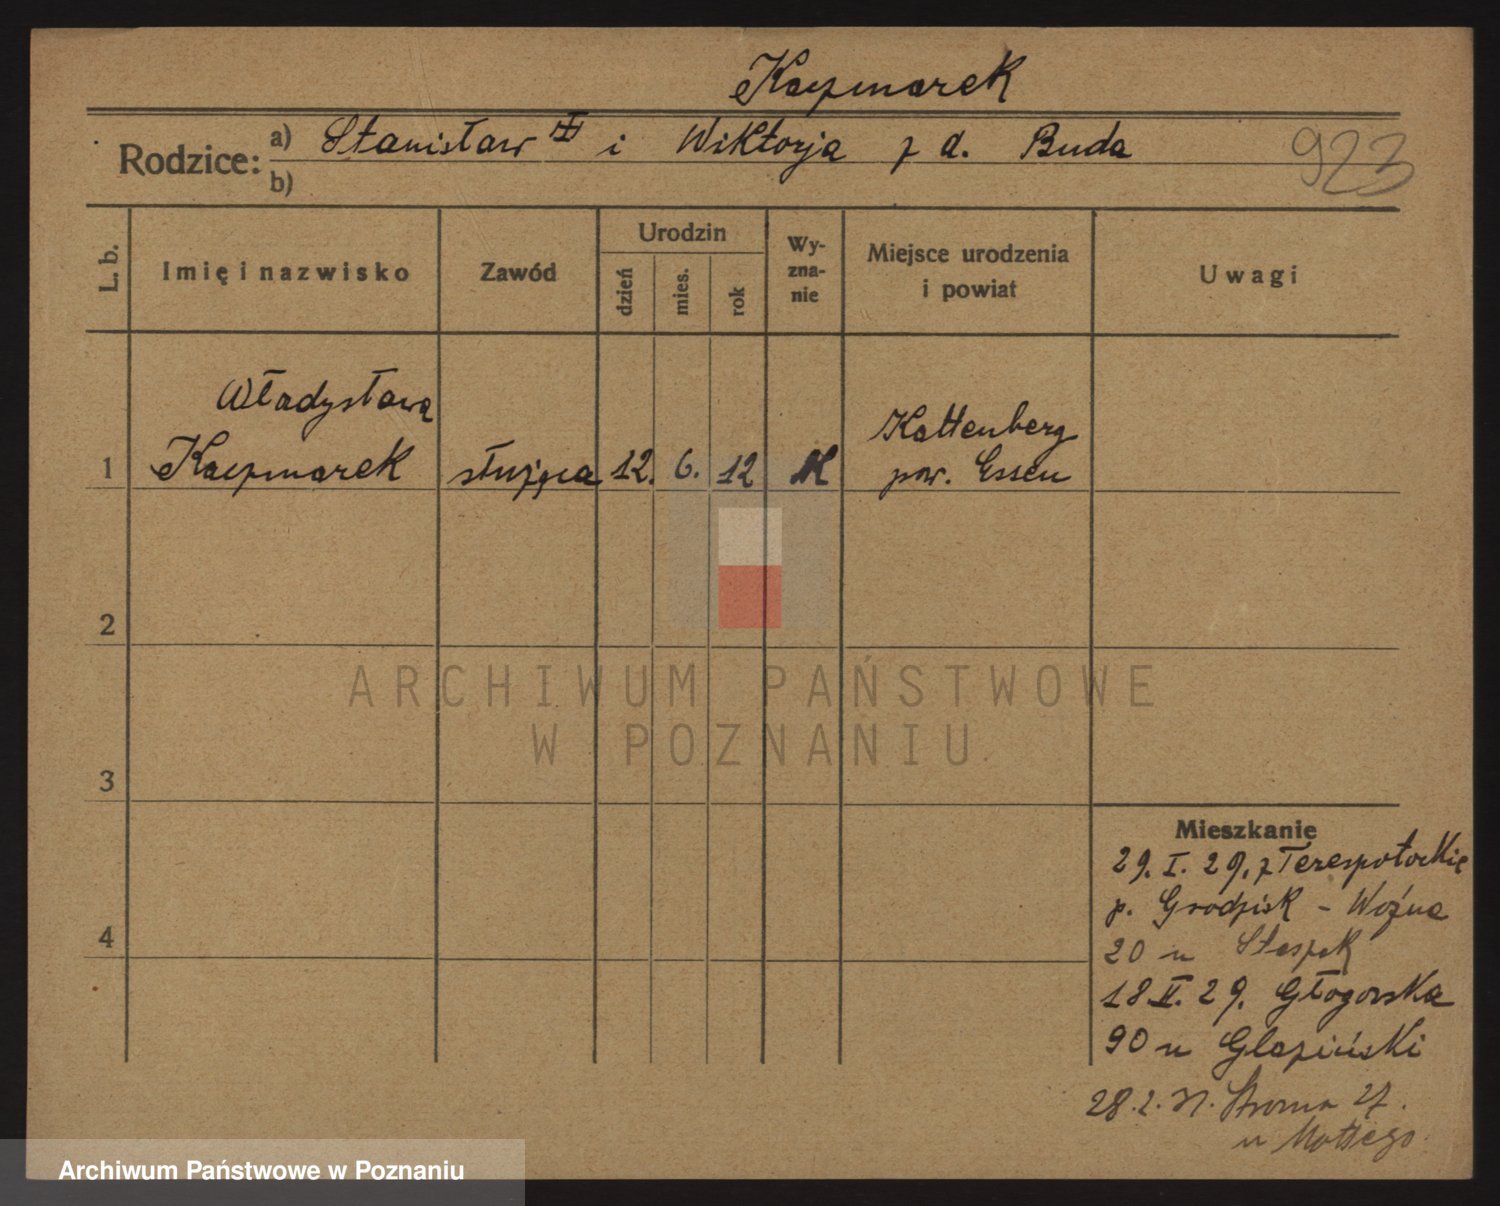 Kaczmarek
Rodzice:
a) Stanisław i Wiktorja z d. Buda
b)
923
L. b.
Imię i nazwisko
Zawód
Urodzin
dzień
mies.
rok
Wy-
zna-
nie
Miejsce urodzenia
i powiat
Uwagi
Władysława
1 Kaczmarek służąca 12. 6. 12 K
Kattenberg
pow. Essen
2
3
4
ARCHIWUM PAŃSTWOWE
W POZNANIU
Mieszkanie
29. I. 29. z Terespotockie
p. Grodzisk - Woźna
20 u
18 II. 29. Głogowska
90 u Glapiński
28. 2. 31. 27.
u
Archiwum Państwowe w Poznaniu